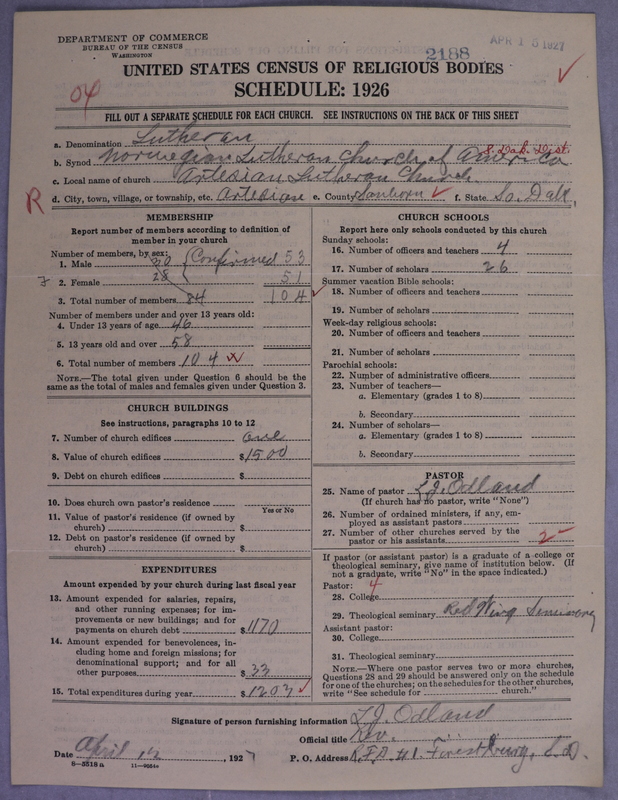 DEPARTMENT OF COMMERCE
BUREAU OF THE CENSUS
WASHINGTON
2188
APR 15 1927
UNITED STATES CENSUS OF RELIGIOUS BODIES
SCHEDULE: 1926
FILL OUT A SEPARATE SCHEDULE FOR EACH CHURCH. SEE INSTRUCTIONS ON THE BACK OF THIS SHEET
a. Denomination Lutheran
S. Dak. Dist.
b. Synod Norwegian Lutheran Church of America
c. Local name of church Artesian Lutheran Church.
R d. City, town, village, or township, etc. Artesian e. County Sanborn f. State So. Dak.
MEMBERSHIP
Report number of members according to definition of
member in your church
Number of members, by sex:
1. Male 30 Confirmed 53
2. Female 28 51
3. Total number of members 84 104
Number of members under and over 13 years old:
4. Under 13 years of age 46
5. 13 years old and over 58
6. Total number of members 104
NOTE.—The total given under Question 6 should be the
same as the total of males and females given under Question 3.
CHURCH BUILDINGS
See instructions, paragraphs 10 to 12
7. Number of church edifices one
8. Value of church edifices $1500
9. Debt on church edifices $
10. Does church own pastor's residence
Yes or No
11. Value of pastor's residence (if owned by
church) $
12. Debt on pastor's residence (if owned by
church) $
EXPENDITURES
Amount expended by your church during last fiscal year
13. Amount expended for salaries, repairs,
and other running expenses; for im-
provements or new buildings; and for
payments on church debt $1170
14. Amount expended for benevolences, in-
cluding home and foreign missions; for
denominational support; and for all
other purposes $33
15. Total expenditures during year $1203
CHURCH SCHOOLS
Report here only schools conducted by this church
Sunday schools:
16. Number of officers and teachers 4
17. Number of scholars 26
Summer vacation Bible schools:
18. Number of officers and teachers
19. Number of scholars
Week-day religious schools:
20. Number of officers and teachers
21. Number of scholars
Parochial schools:
22. Number of administrative officers
23. Number of teachers—
a. Elementary (grades 1 to 8)
b. Secondary
24. Number of scholars—
a. Elementary (grades 1 to 8)
b. Secondary
PASTOR
25. Name of pastor L. J. Odland
(If church has no pastor, write "None")
26. Number of ordained ministers, if any, em-
ployed as assistant pastors
27. Number of other churches served by the
pastor or his assistants 2
If pastor (or assistant pastor) is a graduate of a college or
theological seminary, give name of institution below. (If
not a graduate, write "No" in the space indicated.)
Pastor: 4
28. College
29. Theological seminary Red Wing Seminary
Assistant pastor:
30. College
31. Theological seminary
NOTE.—Where one pastor serves two or more churches,
Questions 28 and 29 should be answered only on the schedule
for one of the churches; on the schedules for the other churches,
write "See schedule for church."
Signature of person furnishing information L. J. Odland
Official title Rev.
Date April 12, 1927 P. O. Address R.F.D. #1. Forestburg, S.D.
8—5518a 11—9051